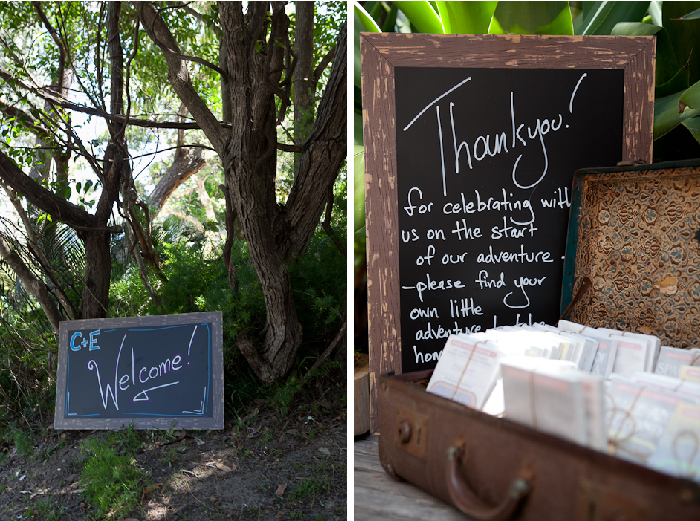 C+E
Welcome!
Thankyou!
for celebrating with
us on the start
of our adventure.
-please find your
own little
adventure